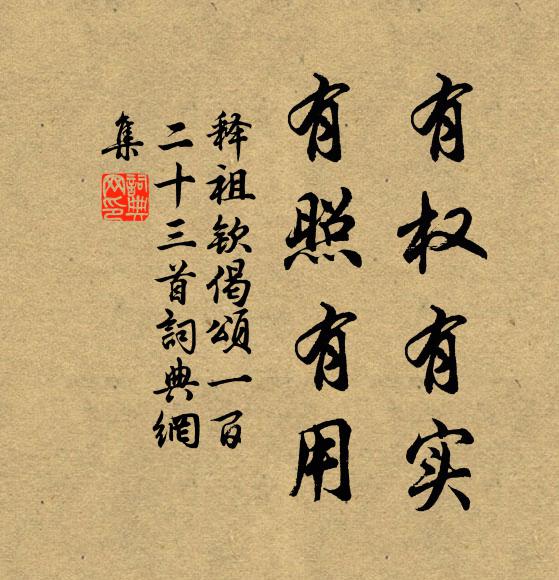 有权有实
有照有用
释祖钦偈頌一百
二十三首詞典網
集
詞典
网印